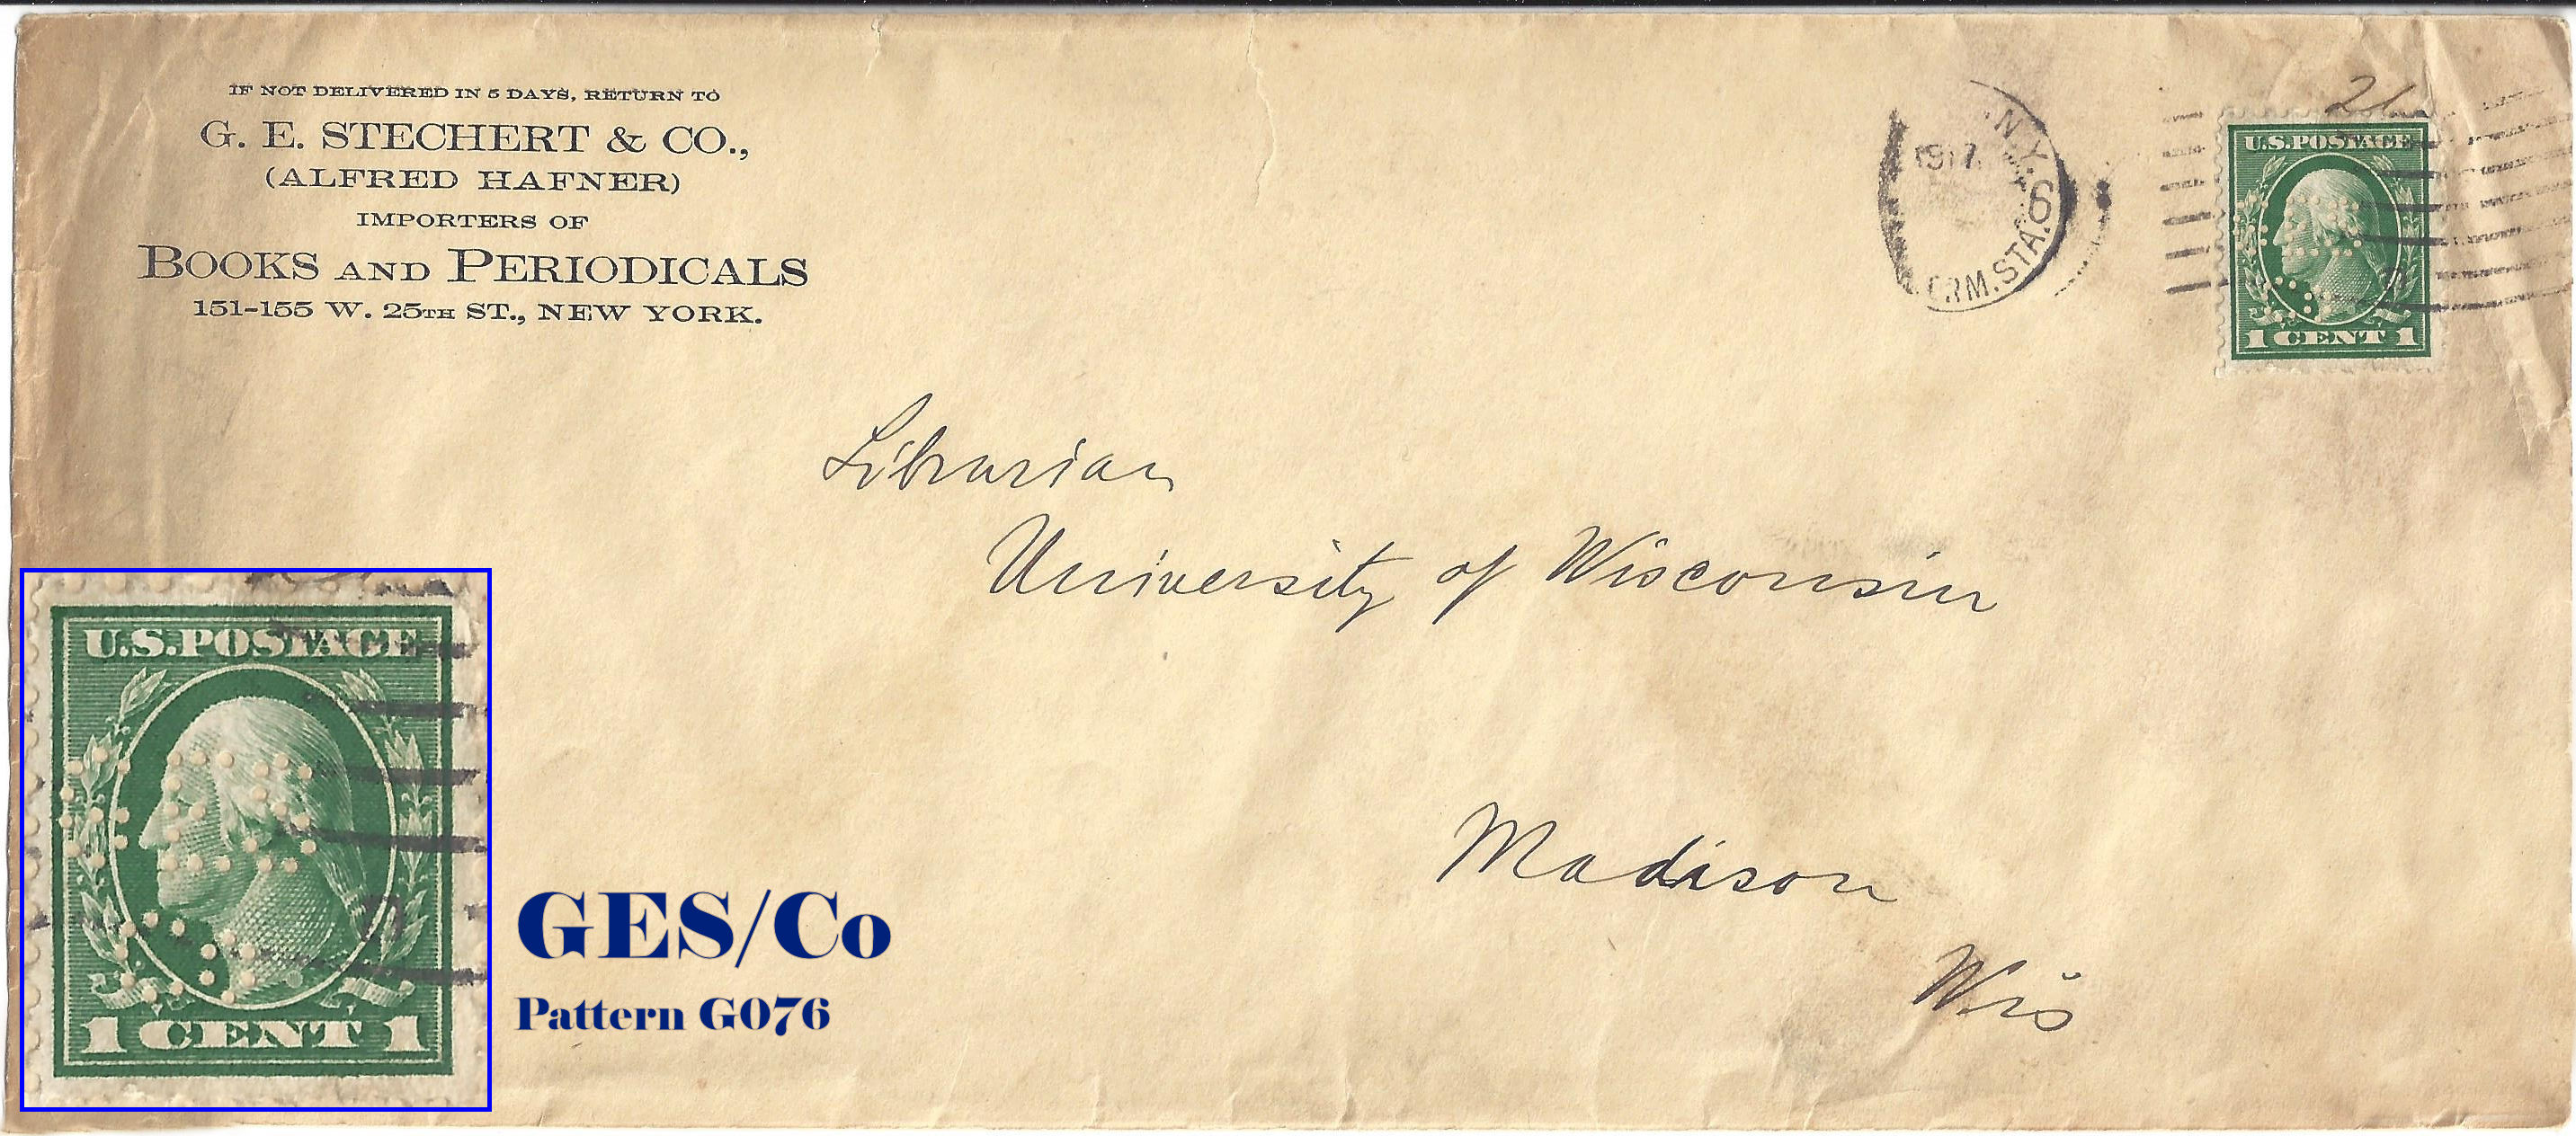 IF NOT DELIVERED IN 5 DAYS, RETURN TO
G. E. STECHERT & CO.,
(ALFRED HAFNER)
IMPORTERS OF
BOOKS AND PERIODICALS
151-155 W. 25TH ST., NEW YORK.
N.Y.
1917
6
STA.
U.S.POSTAGE
1 CENT 1
Librarian
University of Wisconsin
Madison
Wis
U.S.POSTAGE
1 CENT 1
GES/Co
Pattern G076